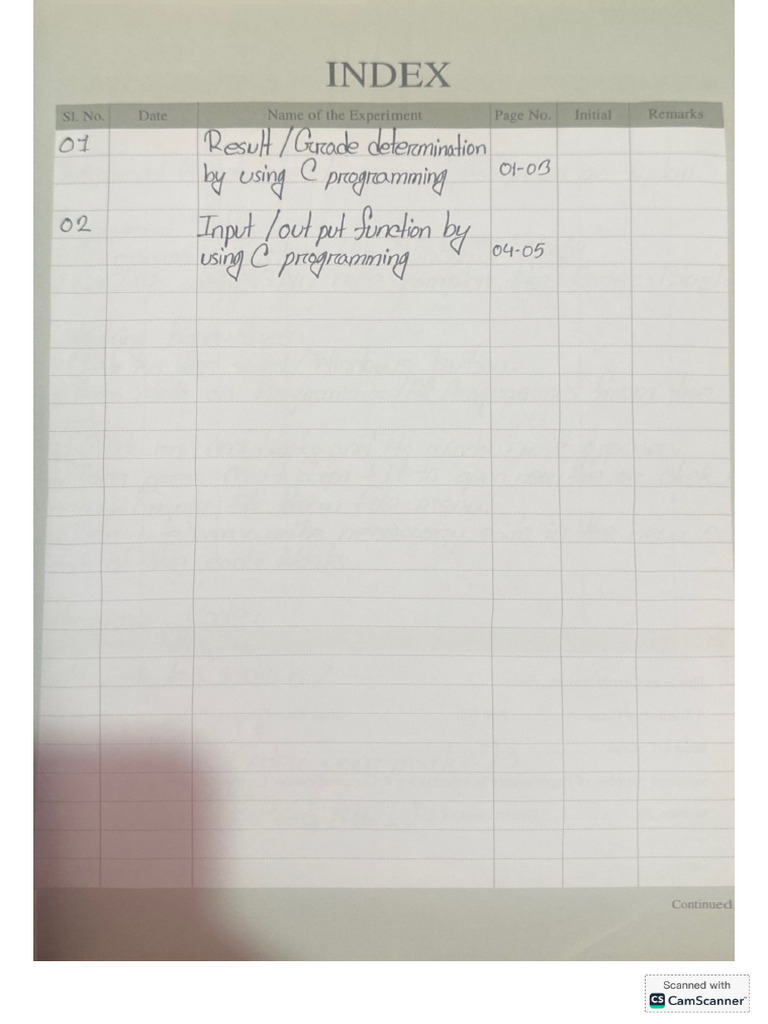 INDEX
Sl. No. Date Name of the Experiment Page No. Initial Remarks
01 Result/Grade determination
by using C programming 01-03
02 Input/output function by
using C programming 04-05
Continued
Scanned with
CS CamScanner